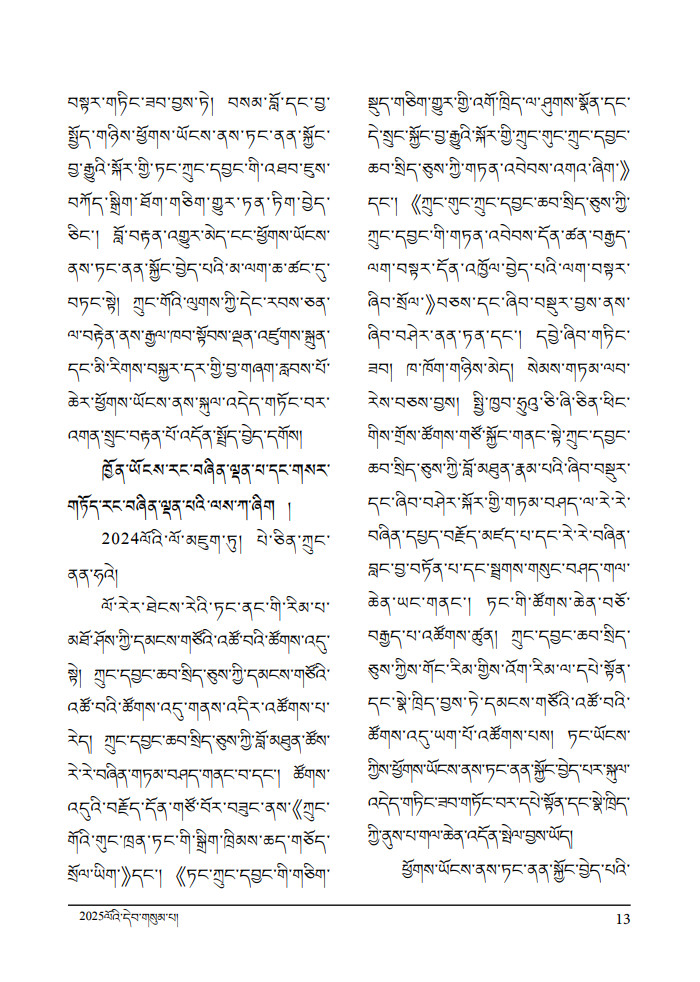 བསྟར་གཏིང་ཟབ་བྱས་ཏེ། བསམ་བློ་དང་བྱ་
སྤྱོད་གཉིས་ཕྱོགས་ཡོངས་ནས་ཏང་ནན་སྐྱོང་
བྱ་རྒྱུའི་སྐོར་གྱི་ཏང་ཀྲུང་དབྱང་གི་འཐབ་ཇུས་
བཀོད་སྒྲིག་ཐོག་གཅིག་གྱུར་ཏན་ཏིག་བྱེད་
ཅིང་། བློ་བརྟན་འགྱུར་མེད་ངང་ཕྱོགས་ཡོངས་
ནས་ཏང་ནན་སྐྱོང་བྱེད་པའི་མ་ལག་ཆ་ཚང་དུ་
བཏང་སྟེ། ཀྲུང་གོའི་ལུགས་ཀྱི་དེང་རབས་ཅན་
ལ་བརྟེན་ནས་རྒྱལ་ཁབ་སྟོབས་ལྡན་འཛུགས་སྐྲུན་
དང་མི་རིགས་བསྐྱར་དར་གྱི་བྱ་གཞག་རླབས་པོ་
ཆེར་ཕྱོགས་ཡོངས་ནས་སྐུལ་འདེད་གཏོང་བར་
འགན་སྲུང་བརྟན་པོ་འདོན་སྤྲོད་བྱེད་དགོས།
ཁྱོན་ཡོངས་རང་བཞིན་ལྡན་པ་དང་གསར་
གཏོད་རང་བཞིན་ལྡན་པའི་ལས་ཀ་ཞིག །
2024ལོའི་ལོ་མཇུག་ཏུ། པེ་ཅིན་ཀྲུང་
ནན་ཧའེ།
ལོ་རེར་ཐེངས་རེའི་ཏང་ནང་གི་རིམ་པ་
མཐོ་ཤོས་ཀྱི་དམངས་གཙོའི་འཚོ་བའི་ཚོགས་འདུ་
སྟེ། ཀྲུང་དབྱང་ཆབ་སྲིད་ཅུས་ཀྱི་དམངས་གཙོའི་
འཚོ་བའི་ཚོགས་འདུ་གནས་འདིར་འཚོགས་པ་
རེད། ཀྲུང་དབྱང་ཆབ་སྲིད་ཅུས་ཀྱི་བློ་མཐུན་ཚོས་
རེ་རེ་བཞིན་གཏམ་བཤད་གནང་བ་དང་། ཚོགས་
འདུའི་བརྗོད་དོན་གཙོ་བོར་བཟུང་ནས་《ཀྲུང་
གོའི་གུང་ཁྲན་ཏང་གི་སྒྲིག་ཁྲིམས་ཆད་གཅོད་
སྲོལ་ཡིག་》དང་། 《ཏང་ཀྲུང་དབྱང་གི་གཅིག་
སྡུད་གཅིག་གྱུར་གྱི་འགོ་ཁྲིད་ལ་ཤུགས་སྣོན་དང་
དེ་སྲུང་སྐྱོང་བྱ་རྒྱུའི་སྐོར་གྱི་ཀྲུང་གུང་ཀྲུང་དབྱང་
ཆབ་སྲིད་ཅུས་ཀྱི་གཏན་འབེབས་འགའ་ཞིག་》
དང་། 《ཀྲུང་གུང་ཀྲུང་དབྱང་ཆབ་སྲིད་ཅུས་ཀྱི་
ཀྲུང་དབྱང་གི་གཏན་འབེབས་དོན་ཚན་བརྒྱད་
ལག་བསྟར་དོན་འཁྱོལ་བྱེད་པའི་ལག་བསྟར་
ཞིབ་སྲོལ་》བཅས་དང་ཞིབ་བསྡུར་བྱས་ནས་
ཞིབ་བཤེར་ནན་ཏན་དང་། དབྱེ་ཞིབ་གཏིང་
ཟབ། ཁ་ཁོག་གཉིས་མེད། སེམས་གཏམ་ལབ་
རེས་བཅས་བྱས། སྤྱི་ཁྱབ་ཧྲུའུ་ཅི་ཞི་ཅིན་ཕིང་
གིས་གྲོས་ཚོགས་གཙོ་སྐྱོང་གནང་སྟེ་ཀྲུང་དབྱང་
ཆབ་སྲིད་ཅུས་ཀྱི་བློ་མཐུན་རྣམ་པའི་ཞིབ་བསྡུར་
དང་ཞིབ་བཤེར་སྐོར་གྱི་གཏམ་བཤད་ལ་རེ་རེ་
བཞིན་དཔྱད་བརྗོད་མཛད་པ་དང་རེ་རེ་བཞིན་
བླང་བྱ་བཏོན་པ་དང་སྦྲགས་གསུང་བཤད་གལ་
ཆེན་ཡང་གནང་། ཏང་གི་ཚོགས་ཆེན་བཅོ་
བརྒྱད་པ་འཚོགས་ཚུན། ཀྲུང་དབྱང་ཆབ་སྲིད་
ཅུས་ཀྱིས་གོང་རིམ་གྱིས་འོག་རིམ་ལ་དཔེ་སྟོན་
དང་སྣེ་ཁྲིད་བྱས་ཏེ་དམངས་གཙོའི་འཚོ་བའི་
ཚོགས་འདུ་ཡག་པོ་འཚོགས་པས། ཏང་ཡོངས་
ཀྱིས་ཕྱོགས་ཡོངས་ནས་ཏང་ནན་སྐྱོང་བྱེད་པར་སྐུལ་
འདེད་གཏིང་ཟབ་གཏོང་བར་དཔེ་སྟོན་དང་སྣེ་ཁྲིད་
ཀྱི་ནུས་པ་གལ་ཆེན་འདོན་སྤེལ་བྱས་ཡོད།
ཕྱོགས་ཡོངས་ནས་ཏང་ནན་སྐྱོང་བྱེད་པའི་
2025ལོའི་དེབ་གསུམ་པ།
13